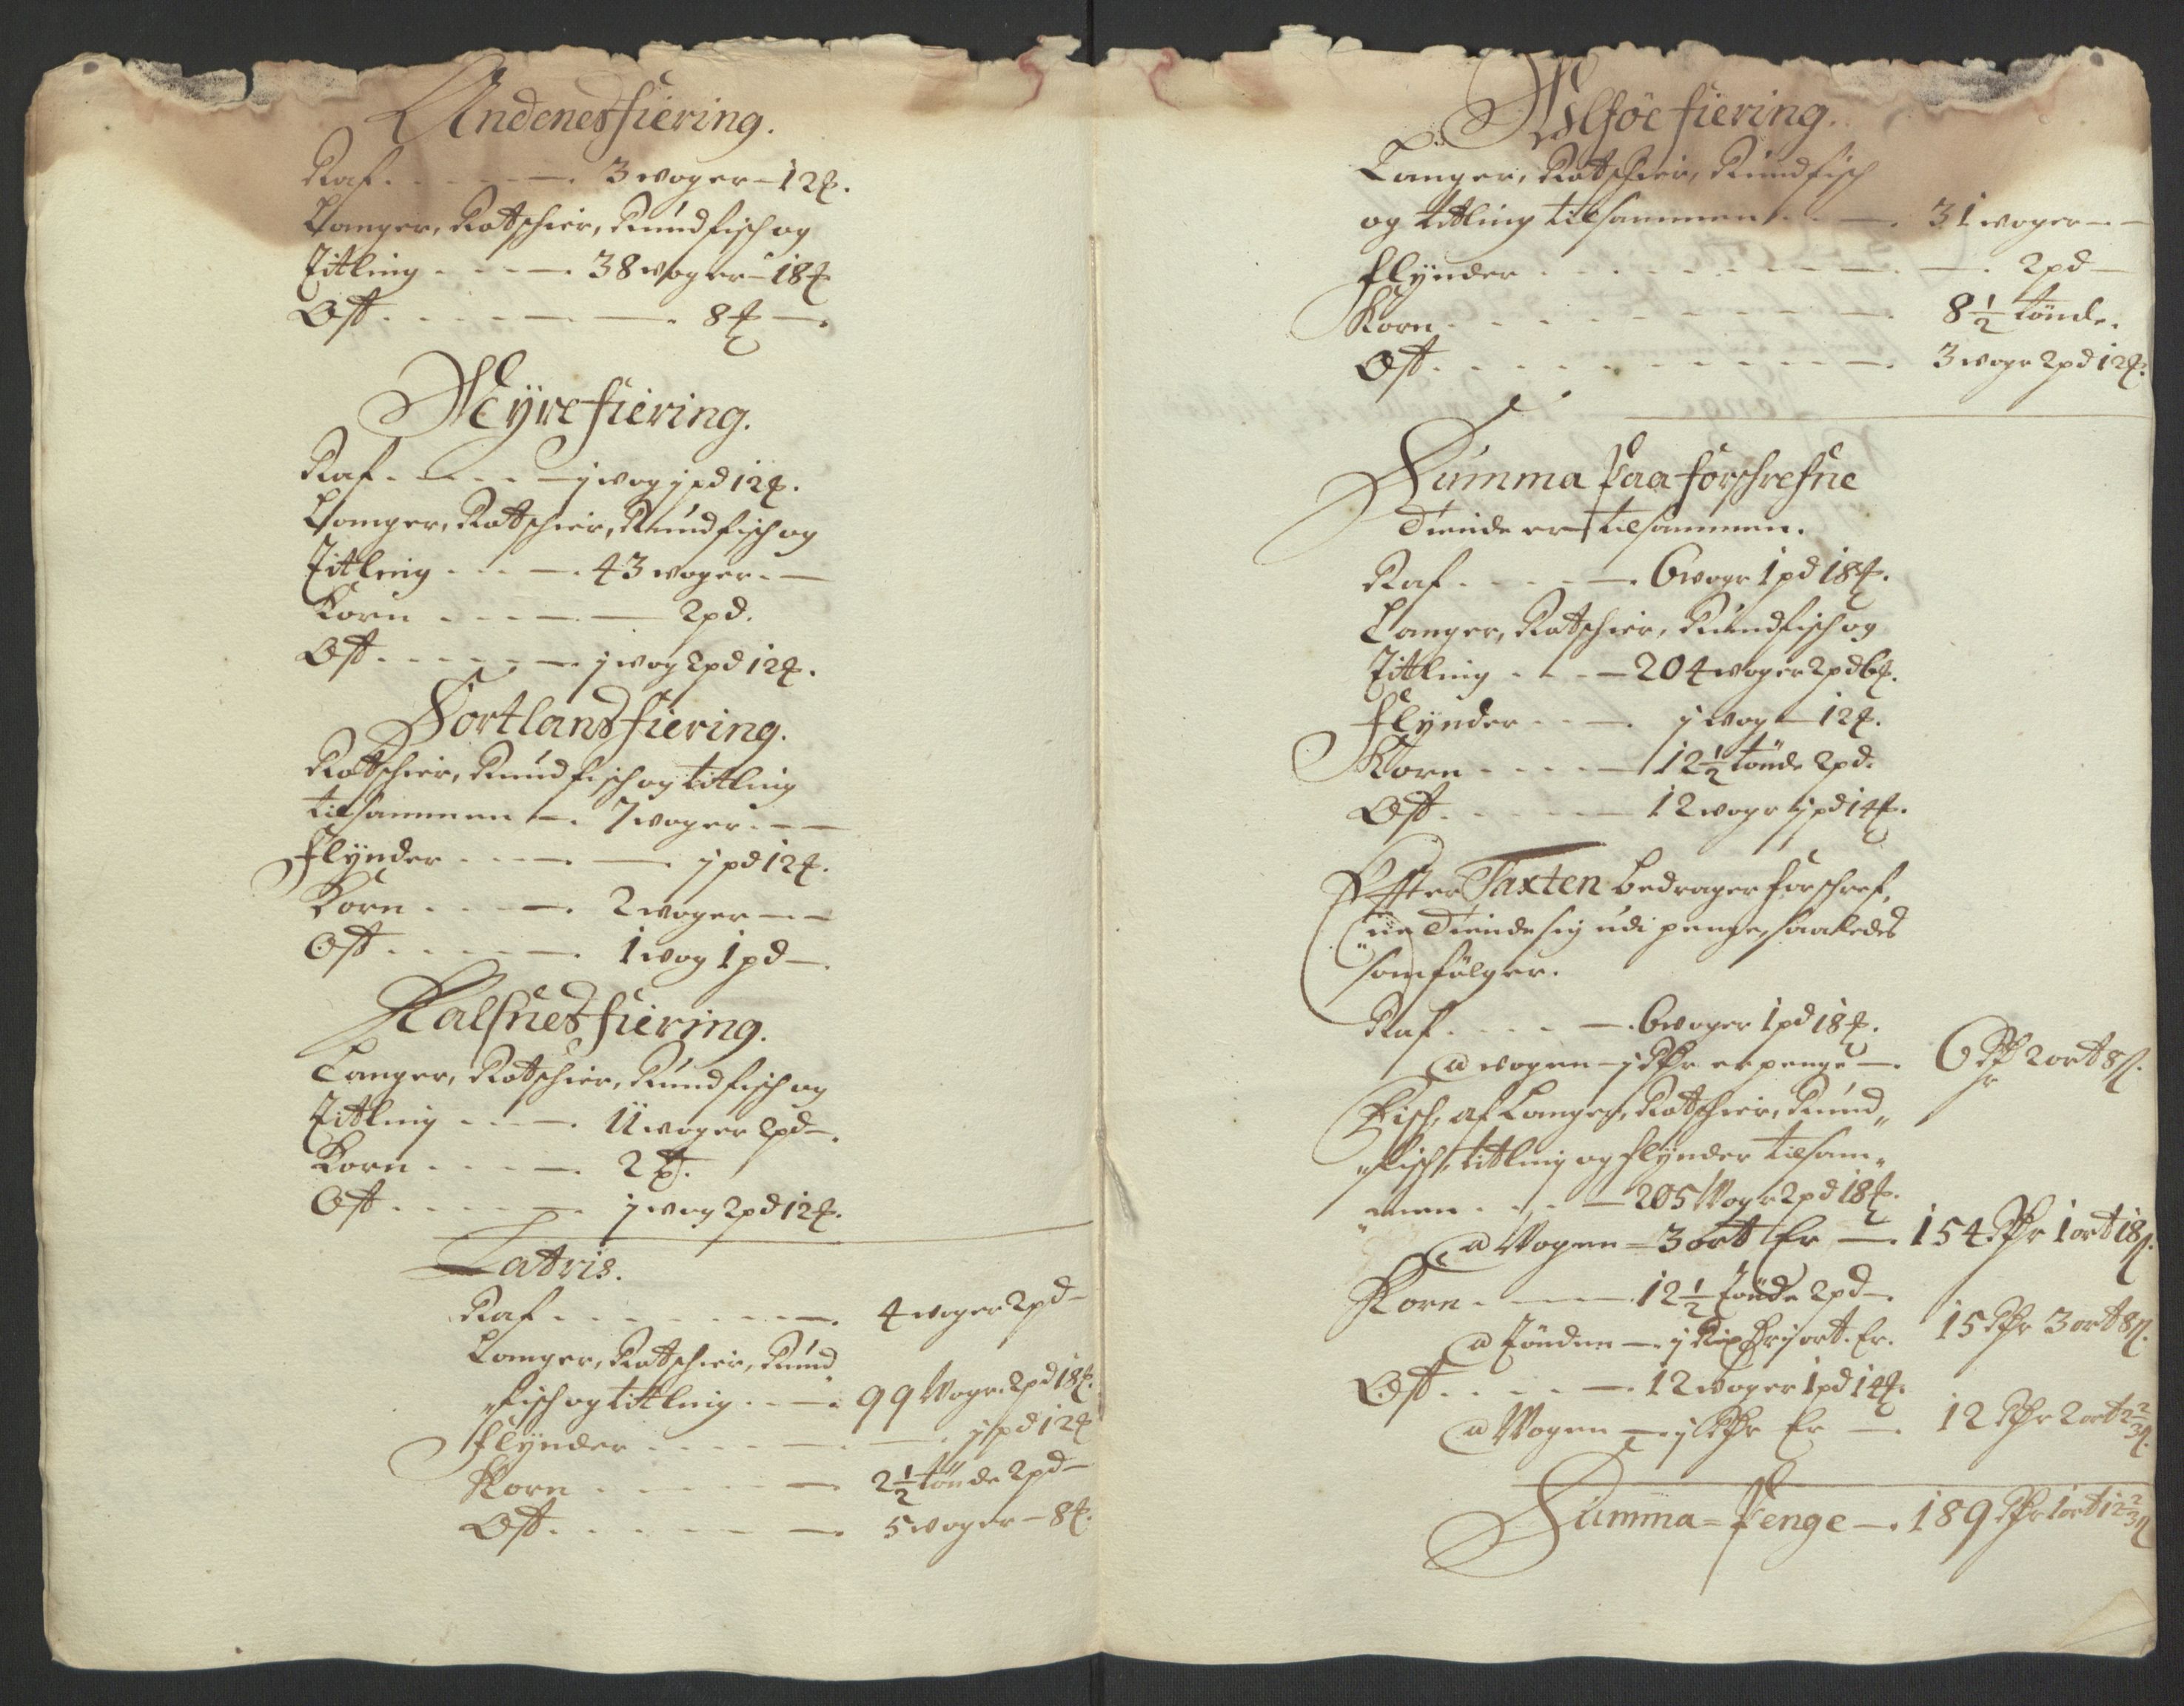 Andenesfiering.
Raf. - - - - 3 woger - 12 ℔.
Langer, Rotskier, Rundfisch og
Titling - - - - 38 woger - 18 ℔
Ost. - - - - - 8 ℔ -.
Øÿrefiering.
Raf. - - - - j wog j pd 12 ℔.
Langer, Rotskier, Rundfisch og
Titling - - - 43 woger. -
Korn - - - - 2 pd.
Ost. - - - - j wog 2 pd 12 ℔.
Sortlandsfiering.
Rotskier, Rundfisch og titling
tilsammen - 7 woger. - -
Flÿnder - - - - j pd 12 ℔.
Korn - - - 2 woger - -
Ost. - - - - 1 wog 1 pd -.
Kalsnesfiering.
Langer, Rotskier, Rundfisch og
Titling - - - 11 woger 2 pd -.
Korn - - - 2 ℔.
Ost - - - - j wog 2 pd 12 ℔.
Latris.
Raf - - - - - - 4 woger 2 pd -
Langer, Rotskier, Rund„
„fisch og titling. - - 99 Woger 2 pd 18 ℔.
Flÿnder - - - - - j pd 12 ℔
Korn - - - - 2 1/2 tönde 2 pd -
Ost. - - - - - 5 woger - 8 ℔.
fiering.
Langer, Rotskier, Rundfisch
og titling tilsammen - - 31 woger - -
Flÿnder - - - - - - 2 pd -
Korn - - - - - - 8 1/2 tönde.
Ost. - - - - - - 3 wogr 2 pd 12 ℔.
Summa Paa forschrefne
Tiende er tilsammen.
Raf. - - - - 6 wogr 1 pd 18 ℔.
Langer, Rotskier, Rundfisch og
Titling - - - 204 woger 2 pd 6 ℔.
Flÿnder - - - j wog - 12 ℔.
Korn - - - - 12 1/2 tönde 2 pd.
Ost. - - - - 12 wogr j pd 14 ℔.
Effter Taxten bedrager forschref„
„ne Tiende sig udi penge, saaledes
som fölger.
Raf. - - - - 6 woger 1 pd 18 ℔.
a wogen - j Rdr er penge -. 6 Rdr 2 ort 8 ß.
Fisch, af Langer, Rotskier, Rund„
„fisch, titling og flÿnder tilsam„
„men. - - - 205 Wogr 2 pd 18 ℔.
a Wogen - 3 ort Er -. 154 Rdr 1 ort 18 ß.
Korn. - - - 12 1/2 Tönde 2 pd -.
a Tönden - j Rix ort. Er. 15 Rdr 3 ort 8 ß.
Ost. - - - - 12 woger 1 pd 14 ℔.
a Wogen - j Rdr Er - 12 Rdr 2 ort 2 2/3 ß.
Summa - Penge -. 189 Rdr 1 ort 12 2/3 ß